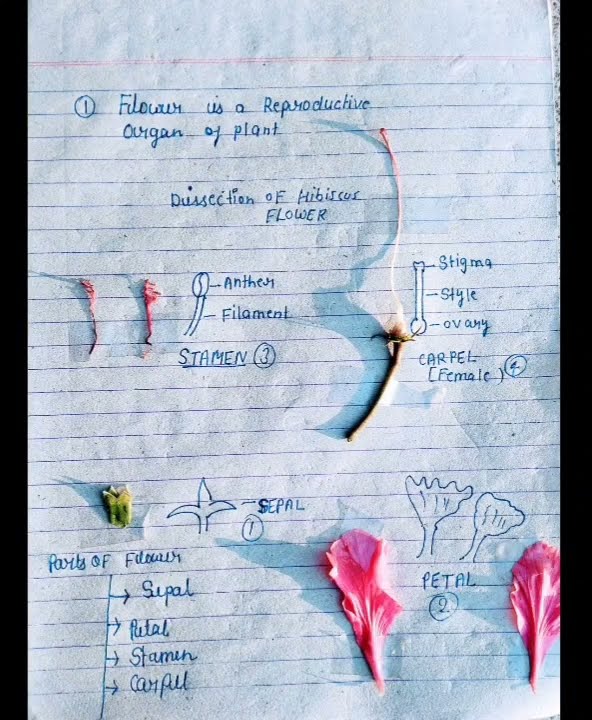 ① Flower is a Reproductive
organ of plant
Dissection OF Hibiscus
FLOWER
Anther
Filament
STAMEN ③
Stigma
Style
ovary
CARPEL
(Female) ④
SEPAL
①
PETAL
②
Parts OF Flower
Sepal
Petal
Stamen
Carpel